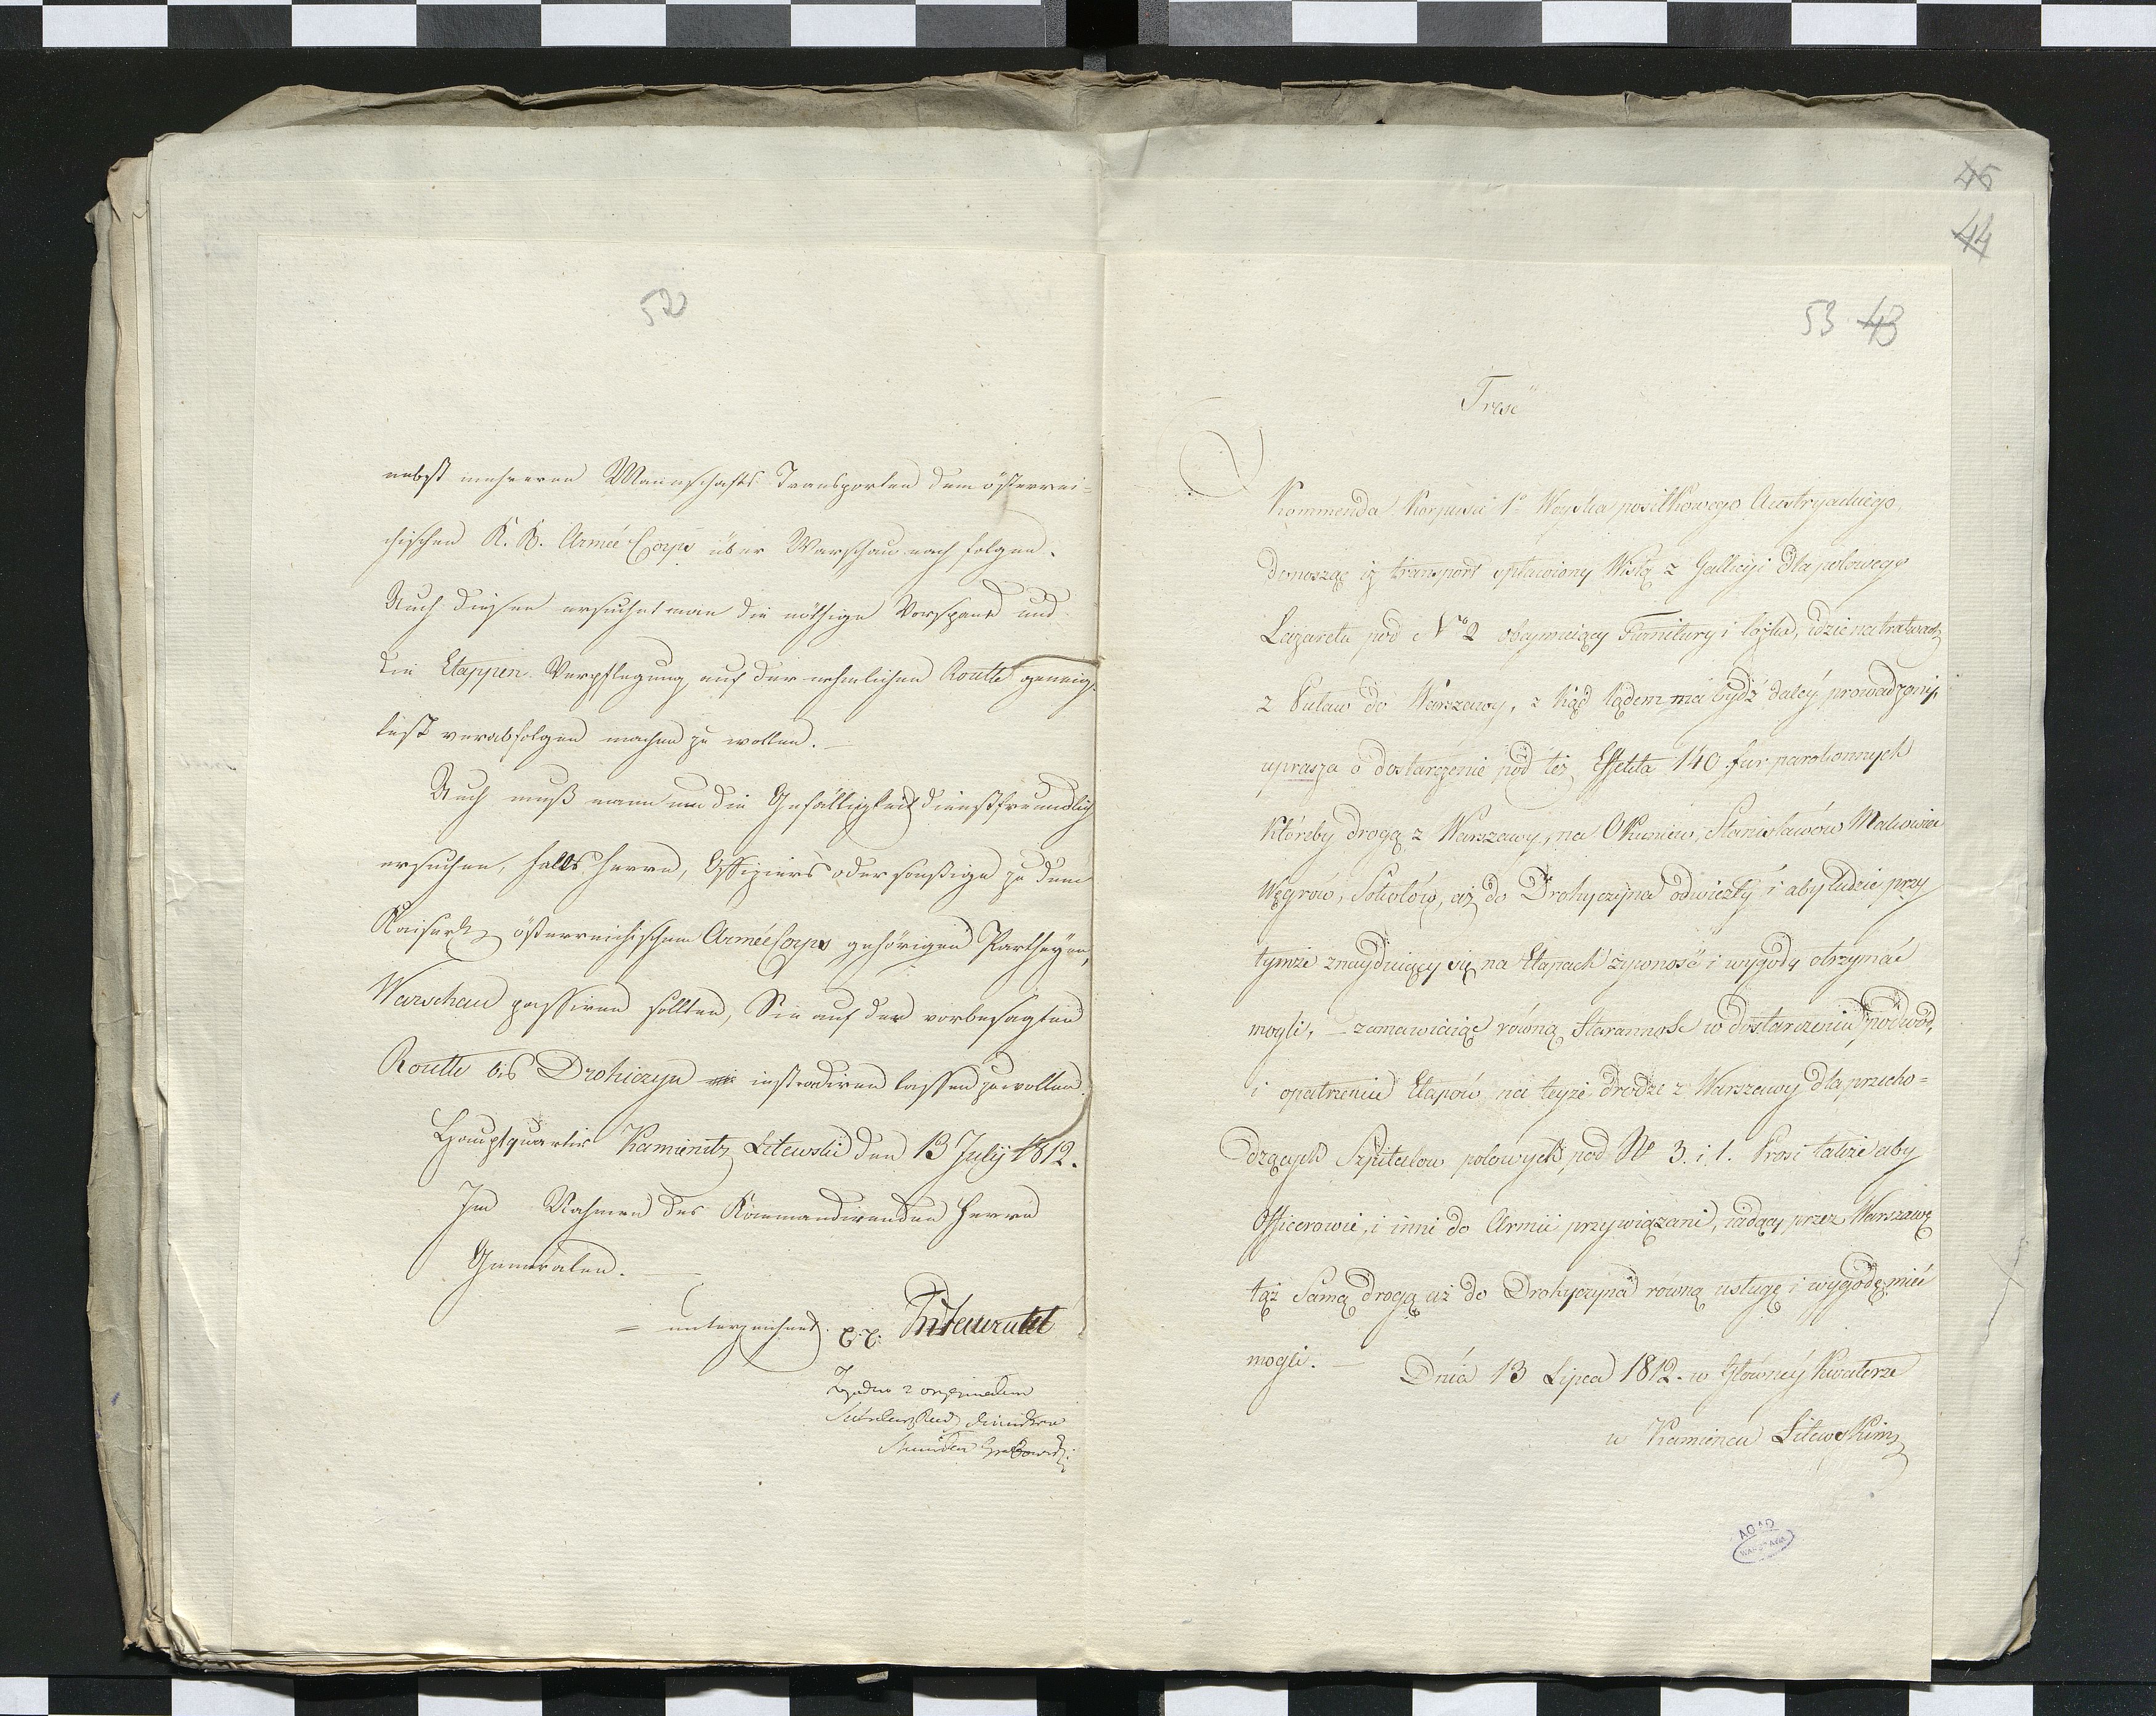 52
nebst mehreren Mannschafts Transporten dem österrei=
chischen K. K. Armée Corps über Warschau nach folgen.
Auch diesen ersuchet man die nöthige Vorspann und
die Etappen Verpflegung auf der nehmlichen Routte geneig-
test verabfolgen machen zu wollen. —
Auch muß man um die Gefälligkeit dienstfreundlich
ersuchen, falls Herrn, Offiziers oder sonstige zu dem
Kaiserl. österreichischen Armée Corps gehörigen Partheyen,
Warschau passiren sollten, Sie auf der vorbesagten
Routte bis Drohiczyn instradiren lassen zu wollen.
Hauptquartir Kamienitz Litewski den 13 July 1812.
Im Nahmen des Kommandirenden Herrn
Generalen. —
= unterzeichnet.
Zgodno z oryginałem
45
44
53 43
Treść
Kommenda Korpusu 1o Woyska posiłkowego Austryackiego,
donosząc iż transport spławiony Wisłą z Gallicyi dla polowego
Lazaretu pod Nro 2 obeymuiący Furnitury i łożka, idzie na tratwach
z Puław do Warszawy, z kąd lądem ma bydź daley prowadzony,
uprasza o dostarczenie pod też Effekta 140 fur parokonnych
któreby drogą z Warszawy, na Okuniew, Stanisławów Makowiec
Węgrów, Sokołów, aż do Drohyczyna odwiozły i aby ludzie przy
tymże znayduiący się na Etapach żywność i wygodę otrzymać
mogli, — zamawiaiąc równą Staranność w dostarczeniu podwód,
i opatrzeniu Etapów na teyże drodze z Warszawy dla przecho=
dzących Szpitalow polowych pod No 3. i 1. Prosi także aby
Officerowie, i inni do Armii przywiązani, iadący przez Warszawę
tąż Samą drogą aż do Drohyczyna równą usługę i wygodę mieć
mogli. — Dnia 13 Lipca 1812. w Główney Kwaterze
w Kamieńcu Litewskim
AGAD
WARSZAWA